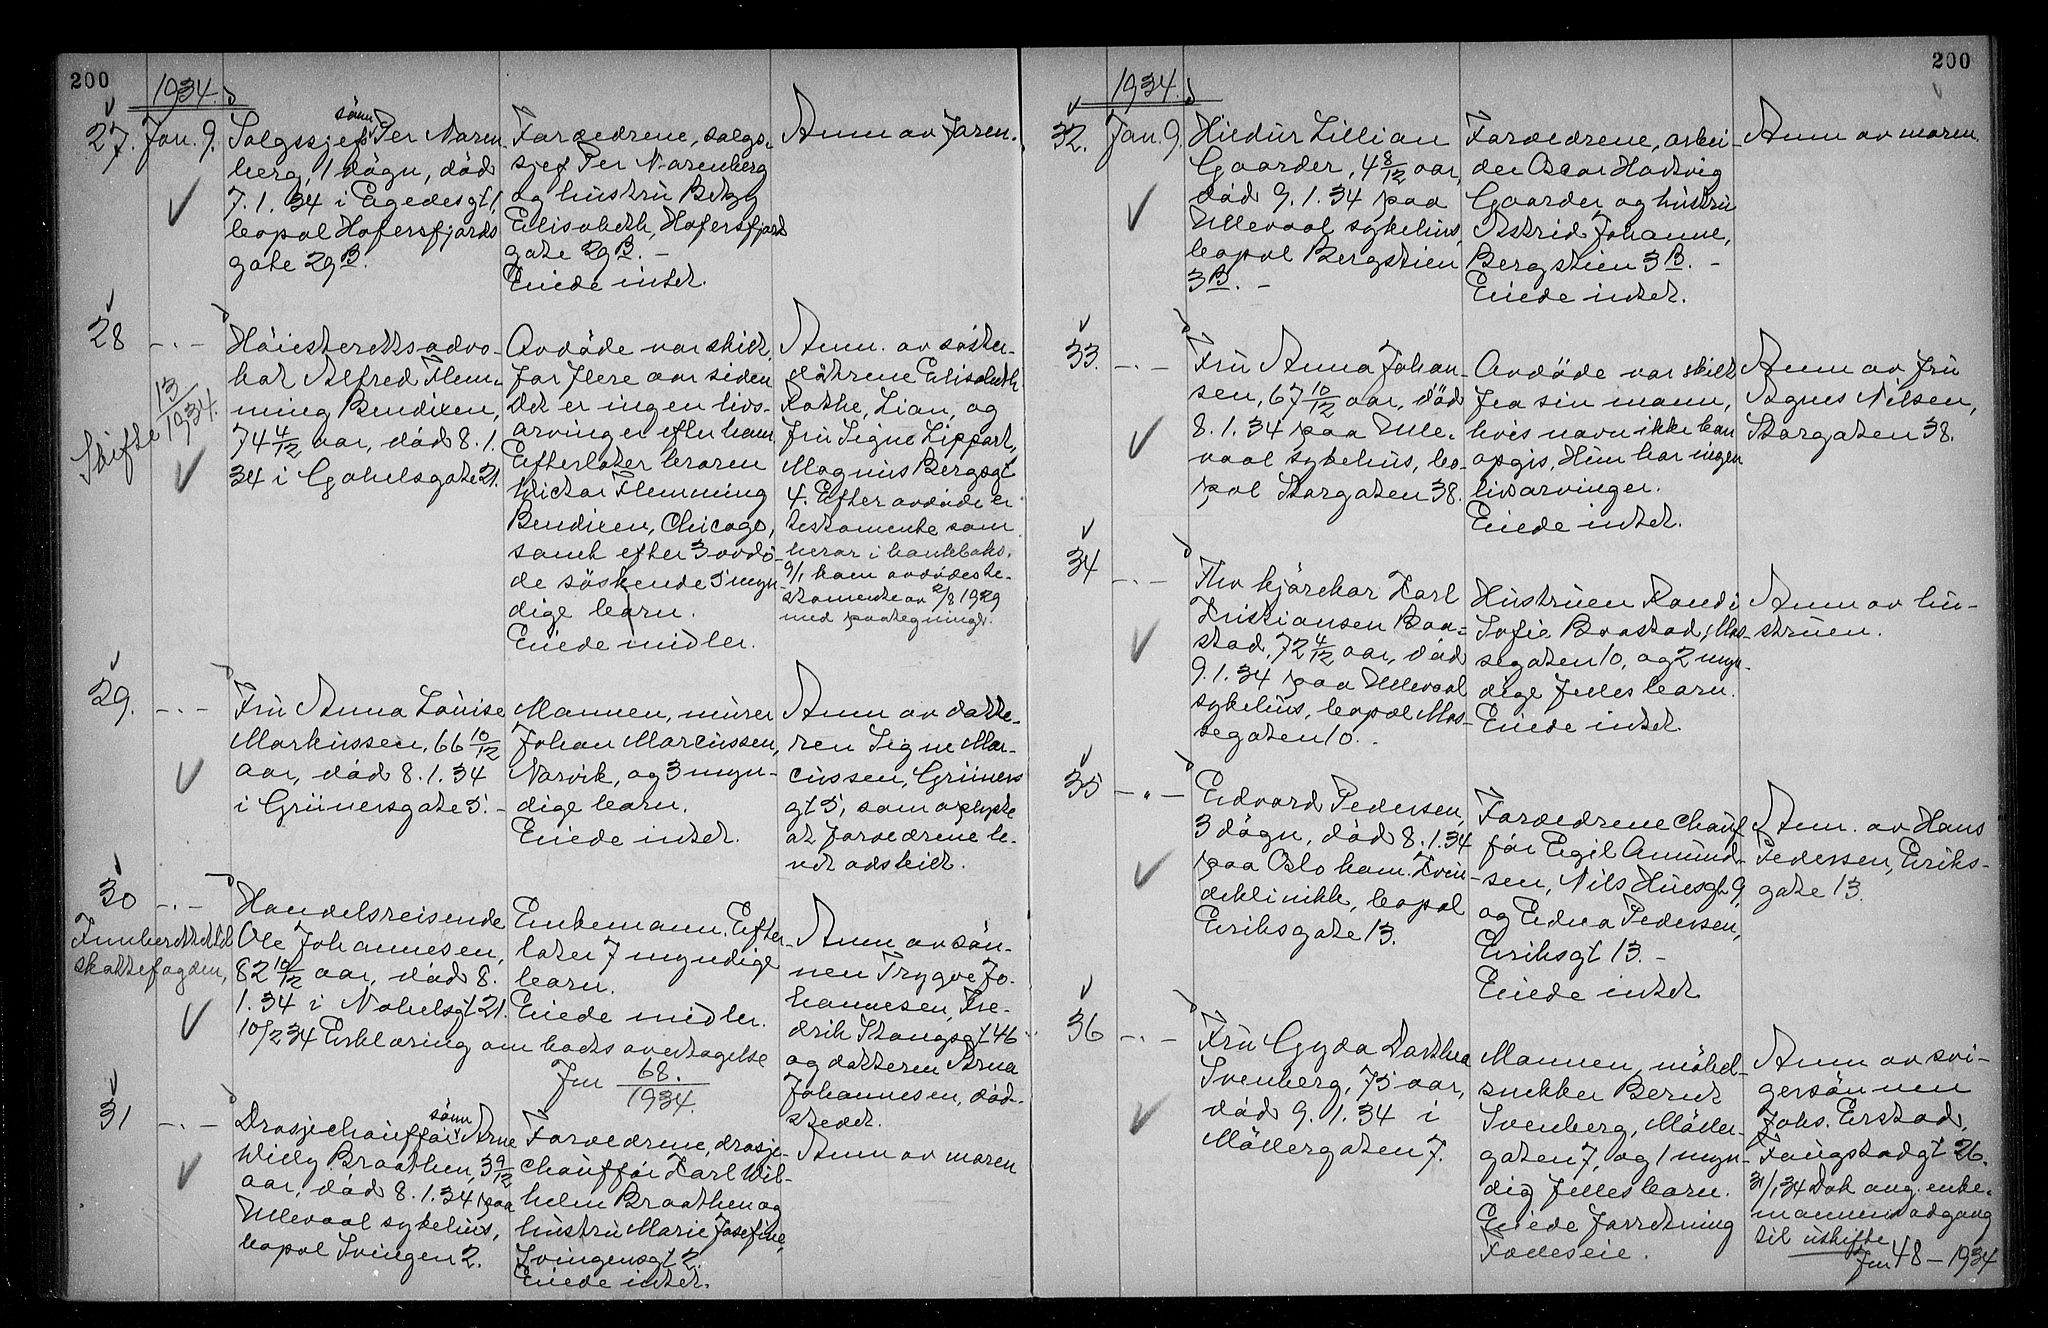 200
1934.
27. Jan. 9.
sönn
Salgssjef Per Naren
berg, 1 dögn, död
7.1.34 i Egedesgt 1,
bopel Hafersfjords
gate 29 B.
Forældrene, salgs-
sjef Per Narenberg
og hustru Betzy
Elisabeth, Hafersfjord
gate 29 B. -
Eiede intet.
Anm av faren.
28 -.-
Skifte 13/1934.
Höiesteretsadvo-
kat Alfred Flem-
ming Bendixen,
74 4/12 aar, död 8.1.
34 i Gabelsgate 21.
Avdöde var skilt
for flere aar siden
Det er ingen livs-
arvinger efter ham
Efterlater broren
Victor Flemming
Bendixen, Chicago,
samt efter 3 avdö-
de söskende 5 myn
dige barn.
Eiede midler.
Anm. av söster-
döttrene Elisabeth
Rothe, Lian, og
fru Signe Lippert,
Magnus Bergsgt
4. Efter avdöde er
testamente som
beror i bankboks.
9/1 kom avdödes te-
stamente av 2/8 1929
med paategninger.
29. -.-
Fru Anna Louise
Markussen, 66 10/12
aar, död 8.1.34
i Grünersgate 5. -
Mannen, murer
Johan Marcussen,
Narvik, og 3 myn-
dige barn.
Eiede intet.
Anm av datte-
ren Signe Mar-
cussen, Grüners
gt 5, som oplyste
at forældrene le-
vet adskilt.
30 -.-
Innberettet til
skattefogden,
Handelsreisende
Ole Johannesen,
82 10/12 aar, död 8.
1.34 i Nobelsgt 21.
10/2 34 Erklæring om boets overtagelse
Jnr 68./1934.
Enkemann. Efter-
later 7 myndige
barn.
Eiede midler.
Anm av sön-
nen Trygve Jo-
hannesen, Fre-
drik Stangsgt 46
og datteren Arna
Johannesen, död-
stedet.
31 -.-
sönn
Drosjechaufför Arne
Willy Braathen, 3 9/12
aar, död 8.1.34 paa
Ullevaal sykehus,
bopel Svingen 2.
Forældrene, drosje-
chaufför Karl Wil-
helm Braathen og
hustru Marie Josefine,
Svingensgt 2.
Eiede intet.
Anm av moren
200
1934.
32. Jan. 9.
Hirdur Lillian
Gaarder, 4 8/12 aar,
död 9.1.34 paa
Ullevaal sykehus,
bopel Bergstien
3 B. -
Forældrene, arbei-
der Oscar Hartvig
Gaarder og hustru
Astrid Johanne,
Bergstien 3 B. -
Eiede intet.
Anm av moren.
33. -.-
Fru Anna Johan-
sen, 67 10/12 aar, död
8.1.34 paa Ulle-
vaal sykehus, bo-
pel Storgaten 38.
Avdöde var skilt
fra sin mann,
hvis navn ikke kan
opgis. Hun har ingen
livsarvinger.
Eiede intet.
Anm av fru
Agnes Nilsen,
Storgaten 38.
34 -.-
Fhv kjörekar Karl
Kristiansen Braa-
stad, 72 4/12 aar, död
9.1.34 paa Ullevaal
sykehus, bopel Mos-
segaten 10.
Hustruen Randi
Sofie Brastad, Mos-
segaten 10, og 2 myn-
dige fellesbarn.
Eiede intet
Anm av hu-
struen.
35 -.-
Edvard Pedersen,
3 dögn, död 8.1.34
paa Oslo kom. Kvin-
deklinikk, bopel
Eriksgate 13.
Forældrene chauf
för Egil Amund-
sen, Nils Huesgt 9,
og Edna Pedersen,
Eriksgt 13. -
Eiede intet
Anm. av Hans
Pedersen, Eriks-
gate 13.
36 -.-
Fru Gyda Dorthea
Svenberg, 75 aar,
död 9.1.34 i
Möllergaten 7.
Mannen, möbel-
snekker Bernt
Svenberg, Möller-
gaten 7, og 1 myn-
dig fellesbarn.
Eiede forretning
Fælleseie.
Anm av svi-
gersönnen
Johs. Erstad,
Faugstadgt 26.
31/1 34 Dok ang. enke-
mannens adgang
til uskifte
Jnr 48 - 1934